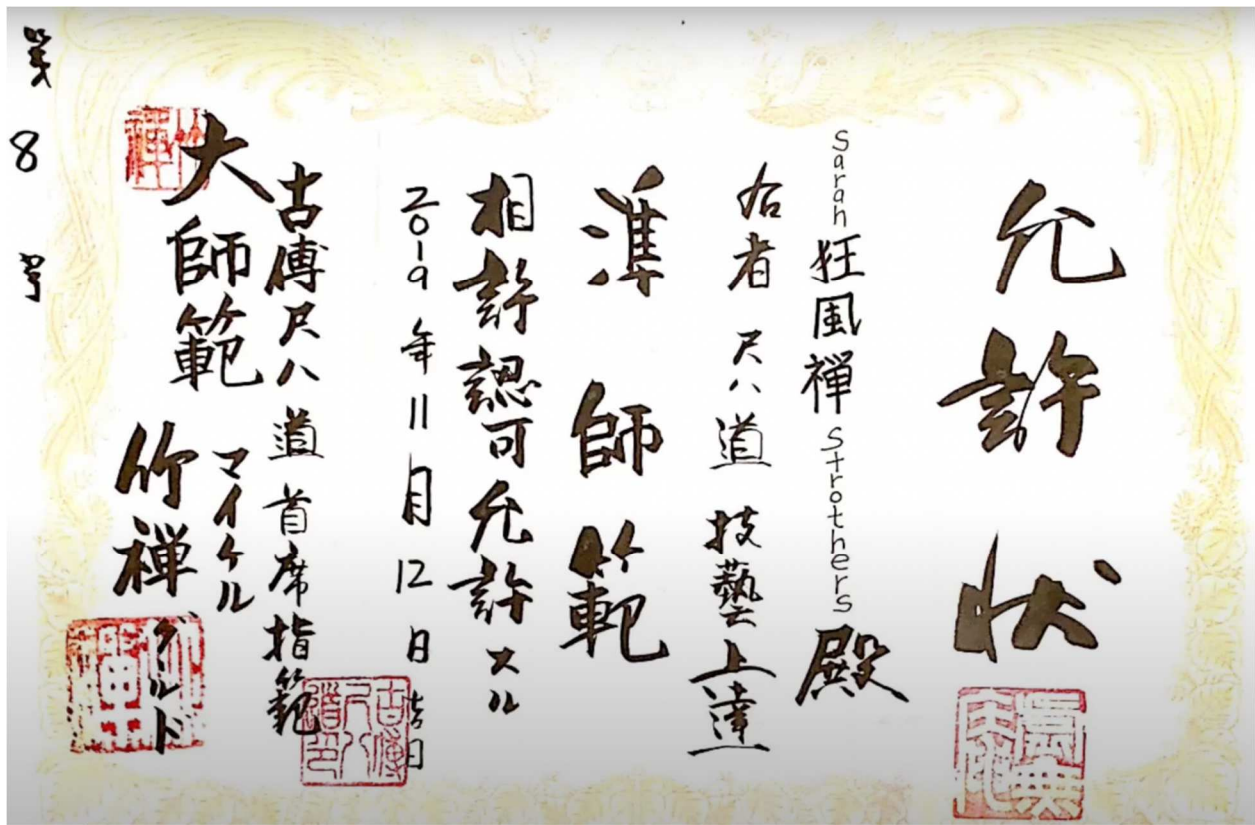 允許状
Sarah 狂風禅 Strothers 殿
右者 尺八道 技藝上達
準師範
相許認可允許スル
2019年11月12日吉日
古傳尺八道 首席指範
マイケル グルド
大師範 竹禅
第8号